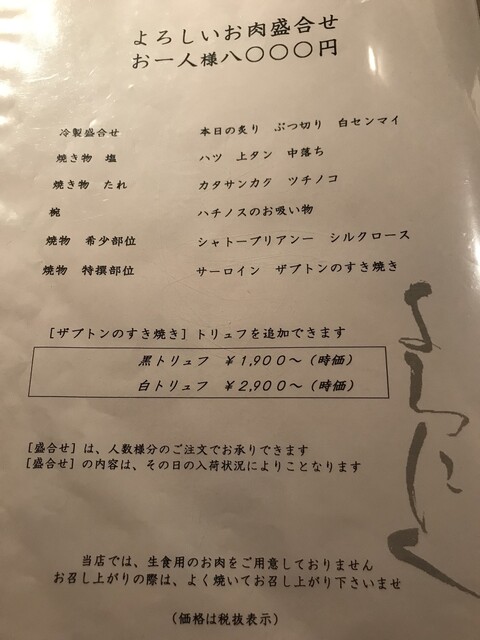 よろしいお肉盛合せ
お一人様八〇〇〇円
冷製盛合せ 本日の炙り ぶつ切り 白センマイ
焼き物 塩 ハツ 上タン 中落ち
焼き物 たれ カタサンカク ツチノコ
椀 ハチノスのお吸い物
焼物 希少部位 シャトーブリアンー シルクロース
焼物 特撰部位 サーロイン ザブトンのすき焼き
[ザブトンのすき焼き] トリュフを追加できます
黒トリュフ ￥1,900～(時価)
白トリュフ ￥2,900～(時価)
[盛合せ] は、人数様分のご注文でお承りできます
[盛合せ] の内容は、その日の入荷状況によりことなります
よろにく
当店では、生食用のお肉をご用意しておりません
お召し上がりの際は、よく焼いてお召し上がり下さいませ
(価格は税抜表示)